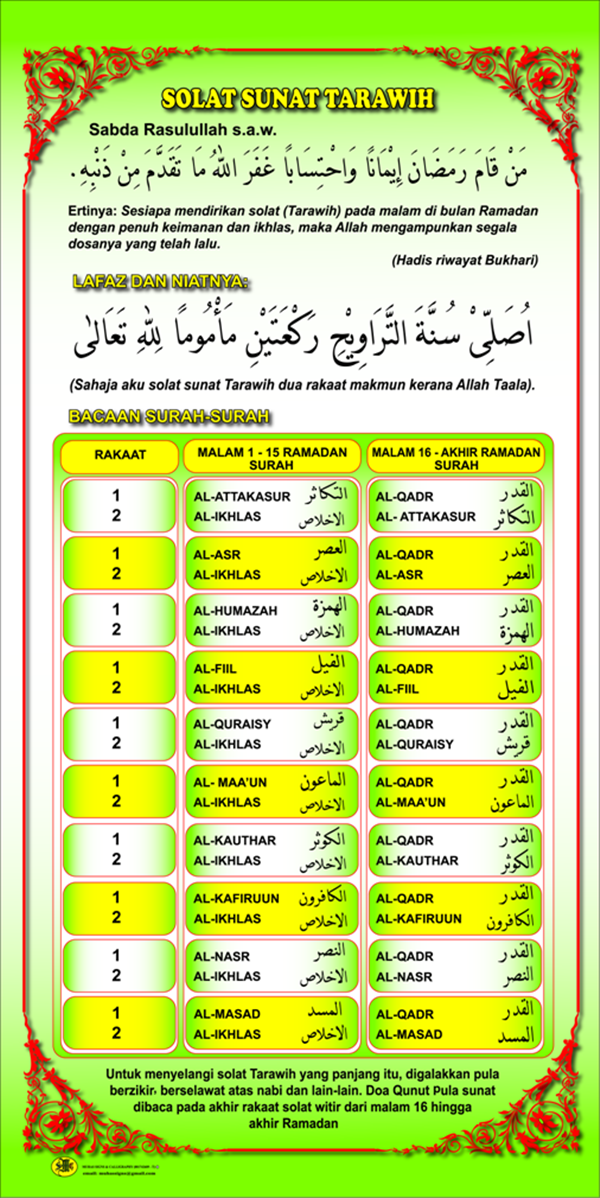 SOLAT SUNAT TARAWIH
Sabda Rasulullah s.a.w.
مَنْ قَامَ رَمَضَانَ إِيْمَانًا وَاحْتِسَابًا غَفَرَ اللهُ مَا تَقَدَّمَ مِنْ ذَنْبِهِ.
Ertinya: Sesiapa mendirikan solat (Tarawih) pada malam di bulan Ramadan
dengan penuh keimanan dan ikhlas, maka Allah mengampunkan segala
dosanya yang telah lalu.
(Hadis riwayat Bukhari)
LAFAZ DAN NIATNYA:
اُصَلِّىْ سُنَّةَ التَّرَاوِيْحِ رَكْعَتَيْنِ مَأْمُومًا لِلّٰهِ تَعَالىٰ
(Sahaja aku solat sunat Tarawih dua rakaat makmun kerana Allah Taala).
BACAAN SURAH-SURAH
RAKAAT MALAM 1 - 15 RAMADAN SURAH MALAM 16 - AKHIR RAMADAN SURAH
1 AL-ATTAKASUR التكاثر AL-QADR القدر
2 AL-IKHLAS الاخلاص AL- ATTAKASUR التكاثر
1 AL-ASR العصر AL-QADR القدر
2 AL-IKHLAS الاخلاص AL-ASR العصر
1 AL-HUMAZAH الهمزة AL-QADR القدر
2 AL-IKHLAS الاخلاص AL-HUMAZAH الهمزة
1 AL-FIIL الفيل AL-QADR القدر
2 AL-IKHLAS الاخلاص AL-FIIL الفيل
1 AL-QURAISY قريش AL-QADR القدر
2 AL-IKHLAS الاخلاص AL-QURAISY قريش
1 AL- MAA'UN الماعون AL-QADR القدر
2 AL-IKHLAS الاخلاص AL-MAA'UN الماعون
1 AL-KAUTHAR الكوثر AL-QADR القدر
2 AL-IKHLAS الاخلاص AL-KAUTHAR الكوثر
1 AL-KAFIRUUN الكافرون AL-QADR القدر
2 AL-IKHLAS الاخلاص AL-KAFIRUUN الكافرون
1 AL-NASR النصر AL-QADR القدر
2 AL-IKHLAS الاخلاص AL-NASR النصر
1 AL-MASAD المسد AL-QADR القدر
2 AL-IKHLAS الاخلاص AL-MASAD المسد
Untuk menyelangi solat Tarawih yang panjang itu, digalakkan pula
berzikir, berselawat atas nabi dan lain-lain. Doa Qunut Pula sunat
dibaca pada akhir rakaat solat witir dari malam 16 hingga
akhir Ramadan